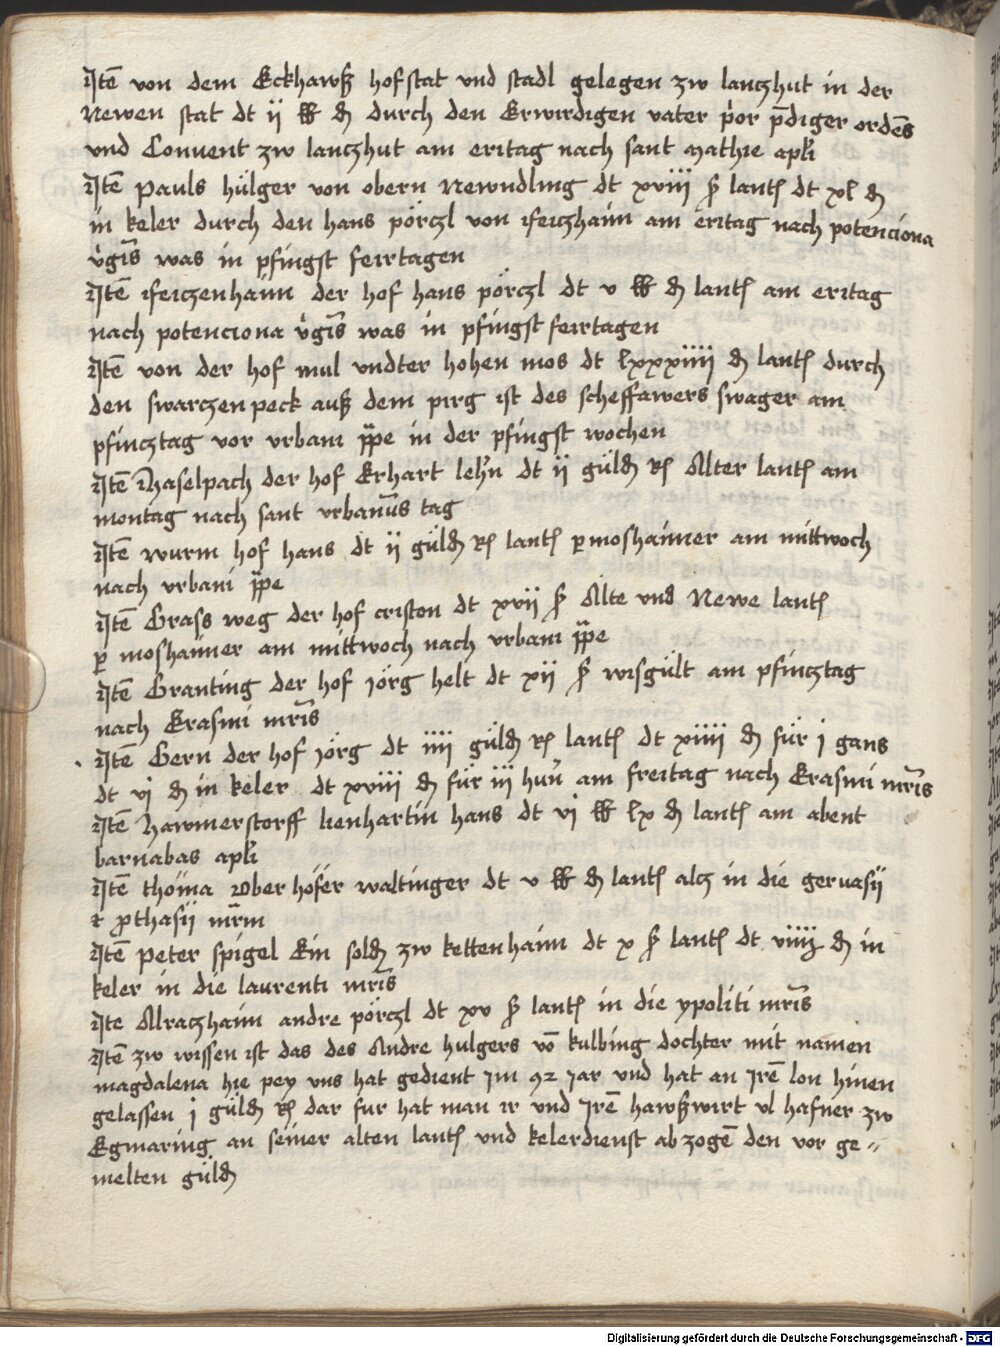 Itē von dem Eckhawß hofstat vnd stadl gelegen zw lanczhut in der
Newen stat dt ij ℔ ₰ durch den Erwirdigen vater p̓or p̄diger ordēs
vnd Conuent zw lanczhut am eritag nach sant Mathie apl̓i
Itē Pauls hülger von obern Newndling dt xviii ꝭ lantꝭ dt xl ₰
in keler durch den hans pörczl von ifeiczhaim am eritag nach potenciona
v̓gīs was in pfingst feirtagen
Itē ifeiczenhaim der hof hans pörczl dt v ℔ ₰ lantꝭ am eritag
nach potenciona v̓gīs was in pfingst feirtagen
Itē von der hof mul vndter hohen mos dt lxxxiiii ₰ lantꝭ durch
den swarczenpeck auß dem pirg ist des scheffawers swager am
pfincztag vor vrbani p̄pe in der pfingst wochen
Itē Haselpach der hof Erhart leh̓n dt ij güld̄ Rꝭ Alter lantꝭ am
montag nach sant vrbanus tag
Itē wurm hof hans dt ij güld̄ Rꝭ lantꝭ p moshaimer am mittwoch
nach vrbani p̄pe
Itē Grass weg der hof criston dt xvij ꝭ Alte vnd Newe lantꝭ
p moshaimer am mittwoch nach vrbani p̄pe
Itē Granting der hof Jörg helt dt xij ꝭ wisgült am pfincztag
nach Erasmi mr̄is
Itē Gern der hof Jörg dt iiii güld̄ Rꝭ lantꝭ dt xiiii ₰ für j gans
dt vj ₰ in keler dt xviii ₰ für iii hun̄ am freitag nach Erasmi mr̄is
Itē Hawmerstorff lienhartin hans dt vj ℔ lx ₰ lantꝭ am abent
barnabas apl̓i
Itē thoma Oberhöfer waltinger dt v ℔ ₰ lantꝭ alcz in die geruasij
et ꝓthasij mr̄m
Itē Peter spigel Ein sold̄ zw kettenhaim dt x ꝭ lantꝭ dt viiii ₰ in
keler in die laurenti mr̄is
Ite Mraczhaim andre pörczl dt xv ꝭ lantꝭ in die ypoliti mr̄is
Itē zw wissen ist das des Andre hulgers vō kulbing dochter mit namen
magdalena hie pey vns hat gedient Im 92 Jar vnd hat an Irē lon hinen
gelassen j güld̄ Rꝭ dar fur hat man ir vnd Irē hawßwirt vl hafner zw
Egmaring an seiner alten lantꝭ vnd kelerdienst ab zogē den vor ge =
melten güld̄
Digitalisierung gefördert durch die Deutsche Forschungsgemeinschaft - DFG